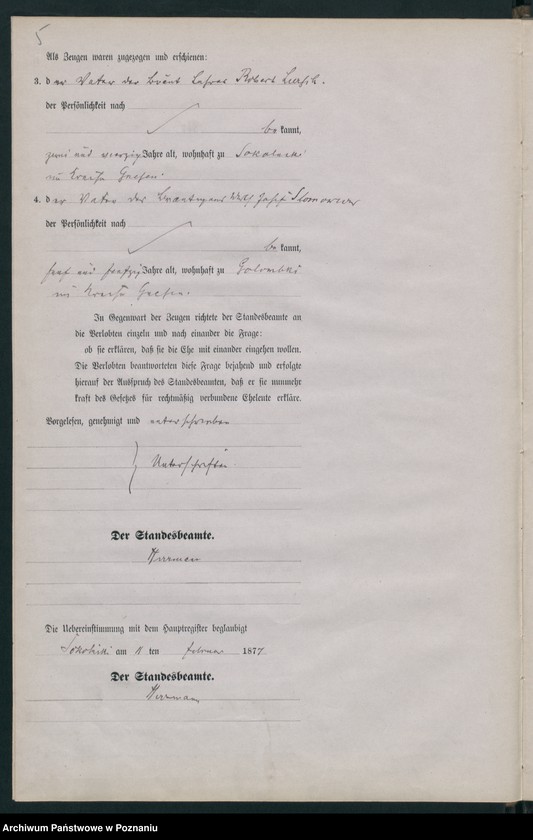 5
Als Zeugen waren zugezogen und erschienen:
3. der Vater der Braut Robert
der Persönlichkeit nach
be kannt,
zwei und vierzig Jahre alt, wohnhaft zu Sokolniki
im Kreise Gnesen.
4. der Vater des Bräutigams Josef
der Persönlichkeit nach
be kannt,
fünf und fünfzig Jahre alt, wohnhaft zu
im Kreise Gnesen.
In Gegenwart der Zeugen richtete der Standesbeamte an
die Verlobten einzeln und nach einander die Frage:
ob sie erklären, daß sie die Ehe mit einander eingehen wollen.
Die Verlobten beantworteten diese Frage bejahend und erfolgte
hierauf der Ausspruch des Standesbeamten, daß er sie nunmehr
kraft des Gesetzes für rechtmäßig verbundene Eheleute erkläre.
Vorgelesen, genehmigt und unterschrieben
Unterschriften.
Der Standesbeamte.
Herrman
Die Uebereinstimmung mit dem Hauptregister beglaubigt
Sokolniki am 11 ten Februar 1877
Der Standesbeamte.
Herrman
Archiwum Państwowe w Poznaniu